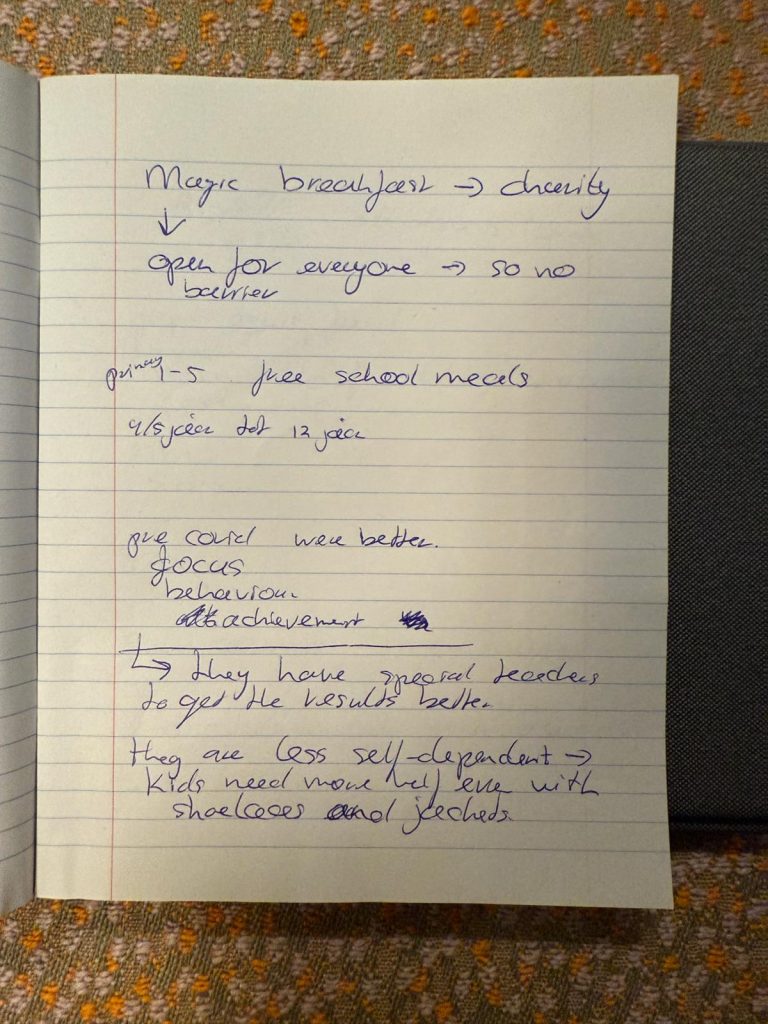 Magic breakfast → charity
↓
open for everyone → so no
barrier
primary 1-5 free school meals
4/5 jaar tot 12 jaar
pre covid were better.
focus
behaviour.
achievement
↳ they have special teachers
to get the results better.
they are less self-dependent →
kids need more help even with
shoelaces and jackets.